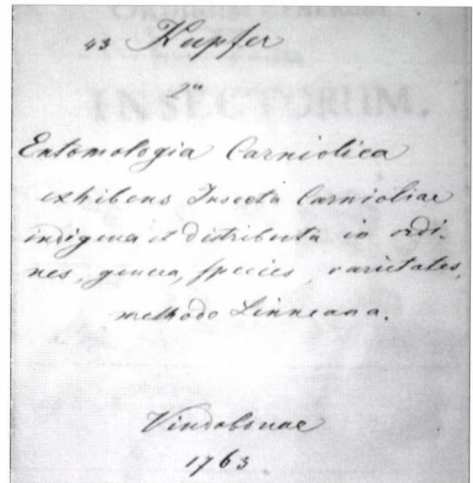 43 Kupfer
zu
Entomologia Carniolica
exhibens Insecta Carnioliae
indigena et distributa in ordi-
nes, genera, species, varietates,
methodo Linneana.
Vindobonae
1763
INSECTORUM.